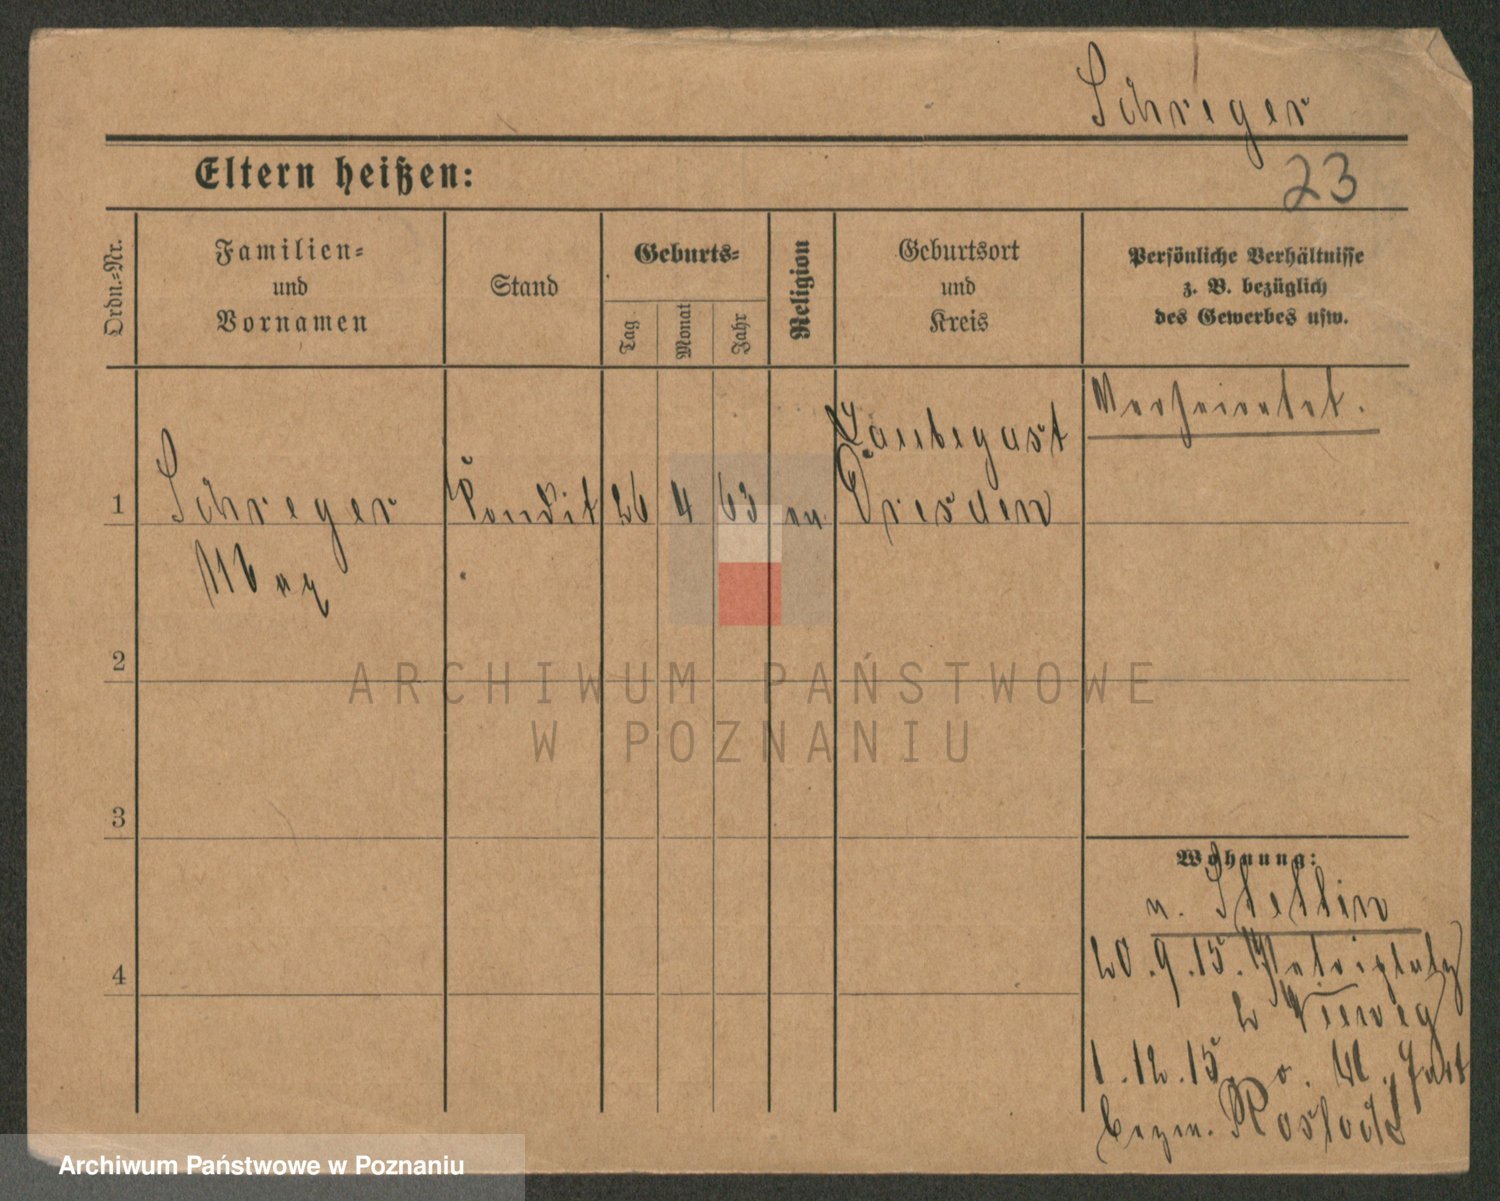 Schreger
Eltern heißen:
23
Ordn.-Nr.
Familien-
und
Vornamen
Stand
Geburts-
Tag
Monat
Jahr
Religion
Geburtsort
und
Kreis
Persönliche Verhältnisse
z. B. bezüglich
des Gewerbes usw.
Verheiratet.
Laubegast
1 Schreger Kondit 26 4 63 ev. Dresden
Max
2
ARCHIWUM PAŃSTWOWE
W POZNANIU
3
Wohnung:
n. Stettin
4
20.9.15. Petriplatz
2 Vieweg
1.12.15. o. M.
bezw. Rostock
Archiwum Państwowe w Poznaniu